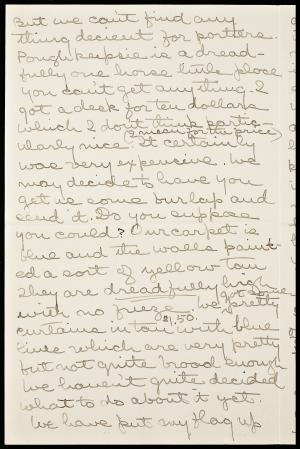 But we can't find any
thing decient for portiers.
Poughkeepsie is a dread-
fully one horse little place
you can't get anything. I
got a desk for ten dollars
which I don't think partic-
(I mean for the price)
ularly nice. It certainly
was very expensive. We
may decide to have you
get us some burlap and
send it. Do you suppose
you could? Our carpet is
blue and the walls paint-
ed a sort of yellow tan
They are dreadfully high
with no frieze. We got some pretty
($1.50)
curtains in tan with blue
lines which are very pretty
but not quite broad enough
We haven't quite decided
what to do about it yet.
We have put my flag up